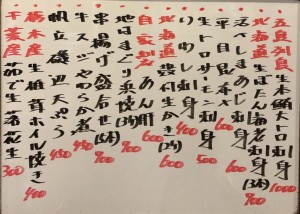 五島列島 生本鮪大トロ刺身 1000
北海道 生ぼたん海老刺身(3本) 900
しまあじ刺身 600
平目昆布〆刺身 600
生トロサーモン刺身 500
いわし刺身 400
北海道 殻付生かき(2ケ) 600
自家製 あん肝 600
地はまぐり浜焼(3ケ) 600
串揚げ盛合せ(5本) 900
牛スジやわらか煮 450
帆立磯辺天ぷら 480
栃木産 生椎茸ホイル焼き 400
千葉産 茹で生落花生 300